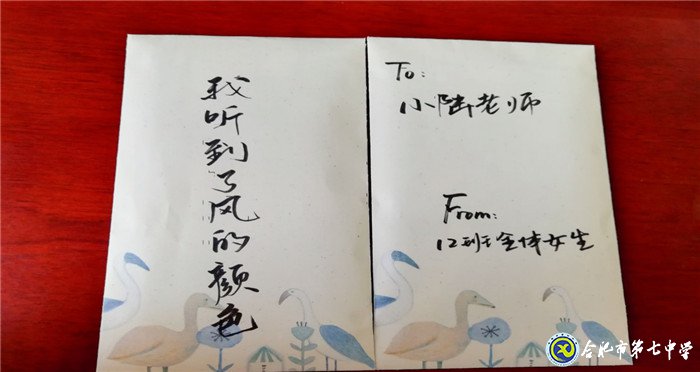 我听到了风的颜色
To:
小陆老师
From:
12班全体女生
合肥市第七中学